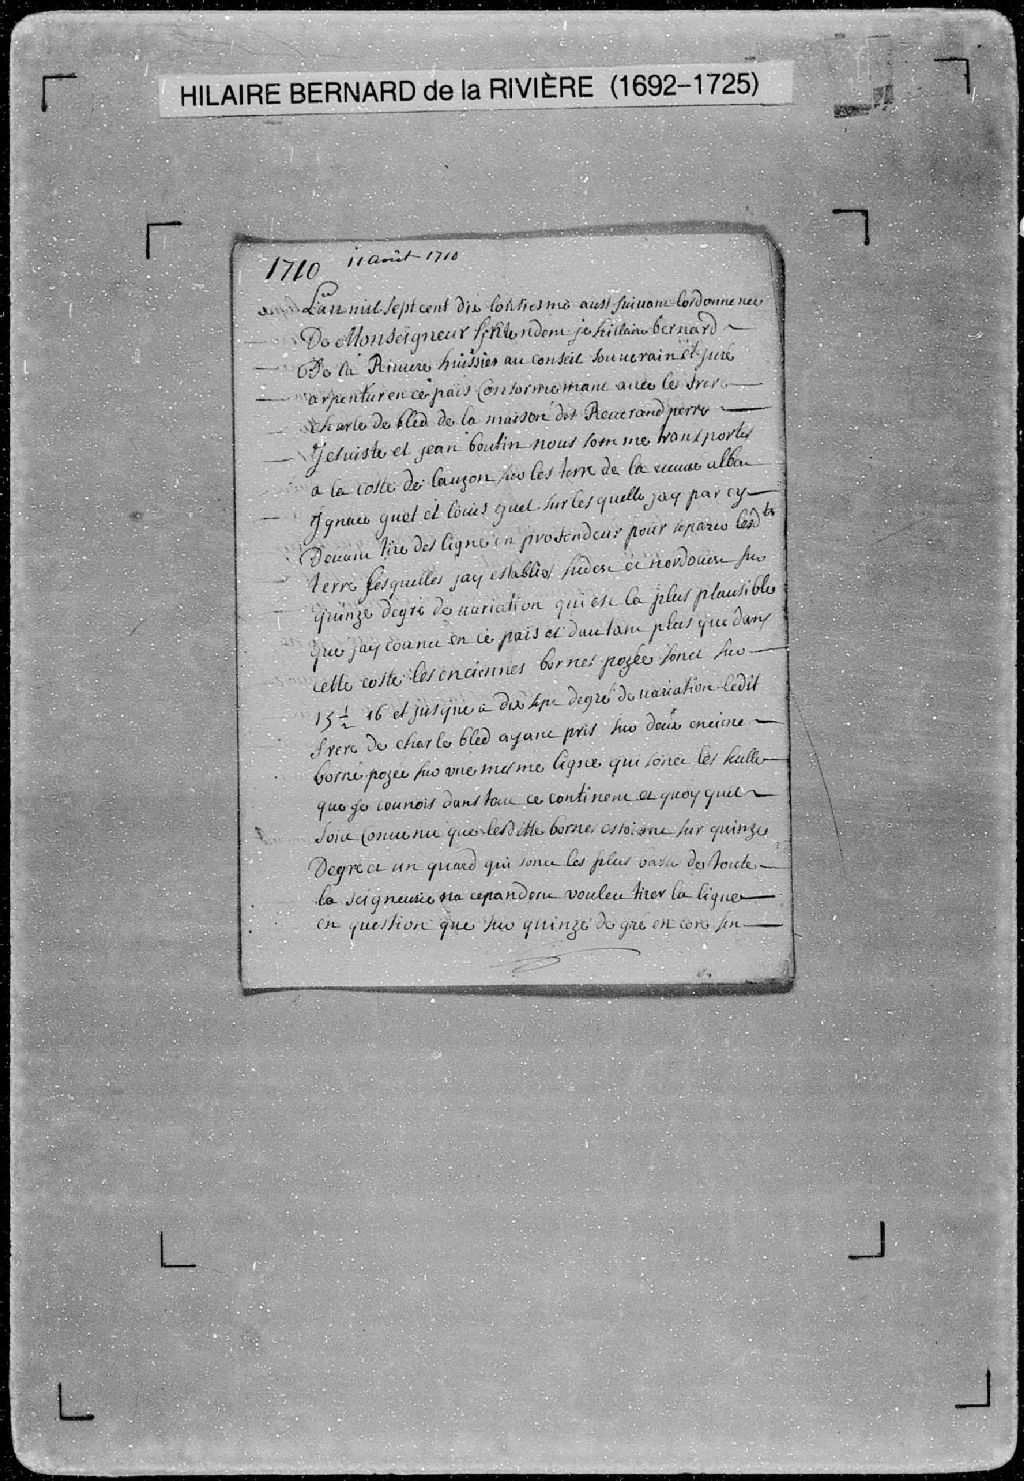 HILAIRE BERNARD de la RIVIÈRE (1692–1725)
1710 11 août 1710
L'an mil sept cent dix aust suivant lordonnence
De Monseigneur je hillaire bernard
De la Riviere huissier au conseil souverain et juré
arpenteur en ce païs Conformemant avec le frere
charle de bled de la maison des Reverand perre
Jesuiste et jean boutin nous somme transportés
a la coste de lauzon sur les terre de la
Ygnace guot et louis guet sur les quelle jay par cy
Devant tiré des ligne en profondeur pour separer lesdtes
terre lesquelles jay establies sudest et nordouest sur
quinze degré de variation qui est la plus plausible
que jay counu en ce païs et dautant plus que dans
cette coste les enciennes bornes pozée sont sur
15 1/2 16 et jusque a dix sept degré de variation ledit
frere de charle bled ayant pris sur deux encienne
borne pozée sur une mesme ligne qui sont les seulle
que je counois dans tout ce continent et quoy quil
soit Convenu que lesditte bornes estoient sur quinze
Degré et un quard qui sont les plus basse de toute
la seigneurie na cepandent voulleu tirer la ligne
en question que sur quinze degré encore